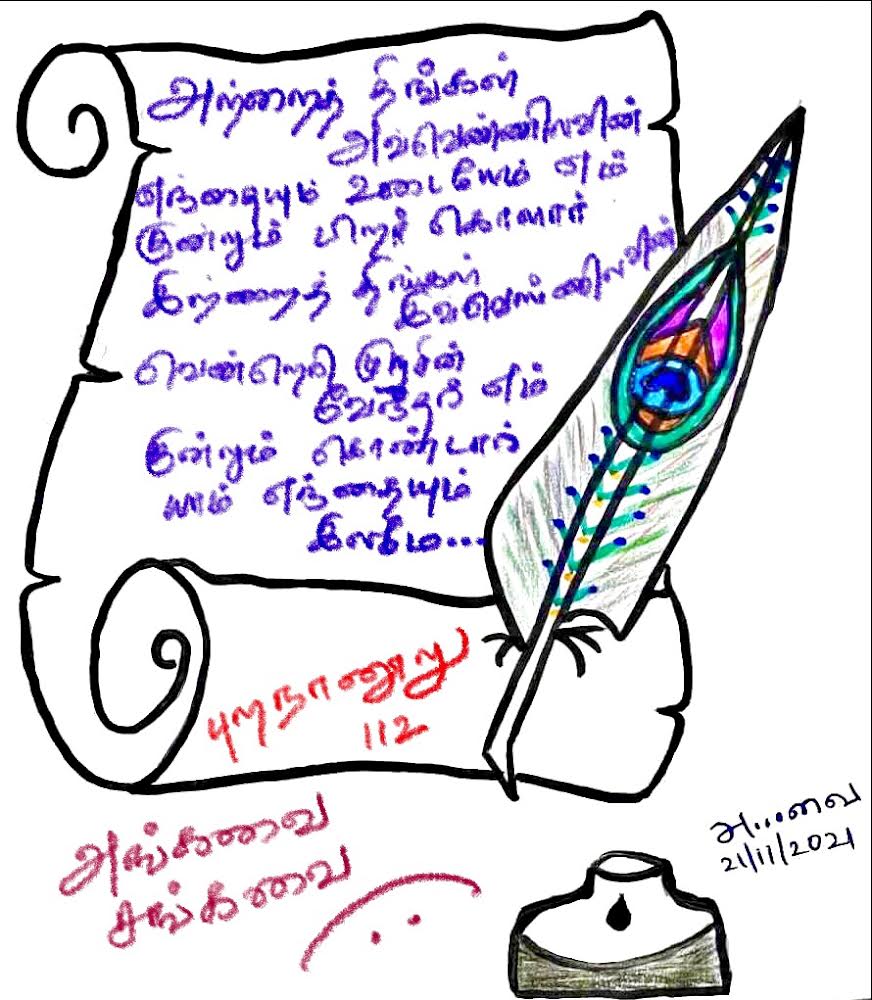 அற்றைத் திங்கள்
அவ்வெண்ணிலவின்
எந்தையும் உடையேம் எம்
குன்றும் பிறர் கொளார்
இற்றைத் திங்கள்
இவ்வெண்ணிலவின்
வென்றெறி முரசின்
வேந்தர் எம்
குன்றும் கொண்டார்
யாம் எந்தையும்
இலமே...
புறநானூறு
112
அங்கவை
சங்கவை
அ...வை
21/11/2021